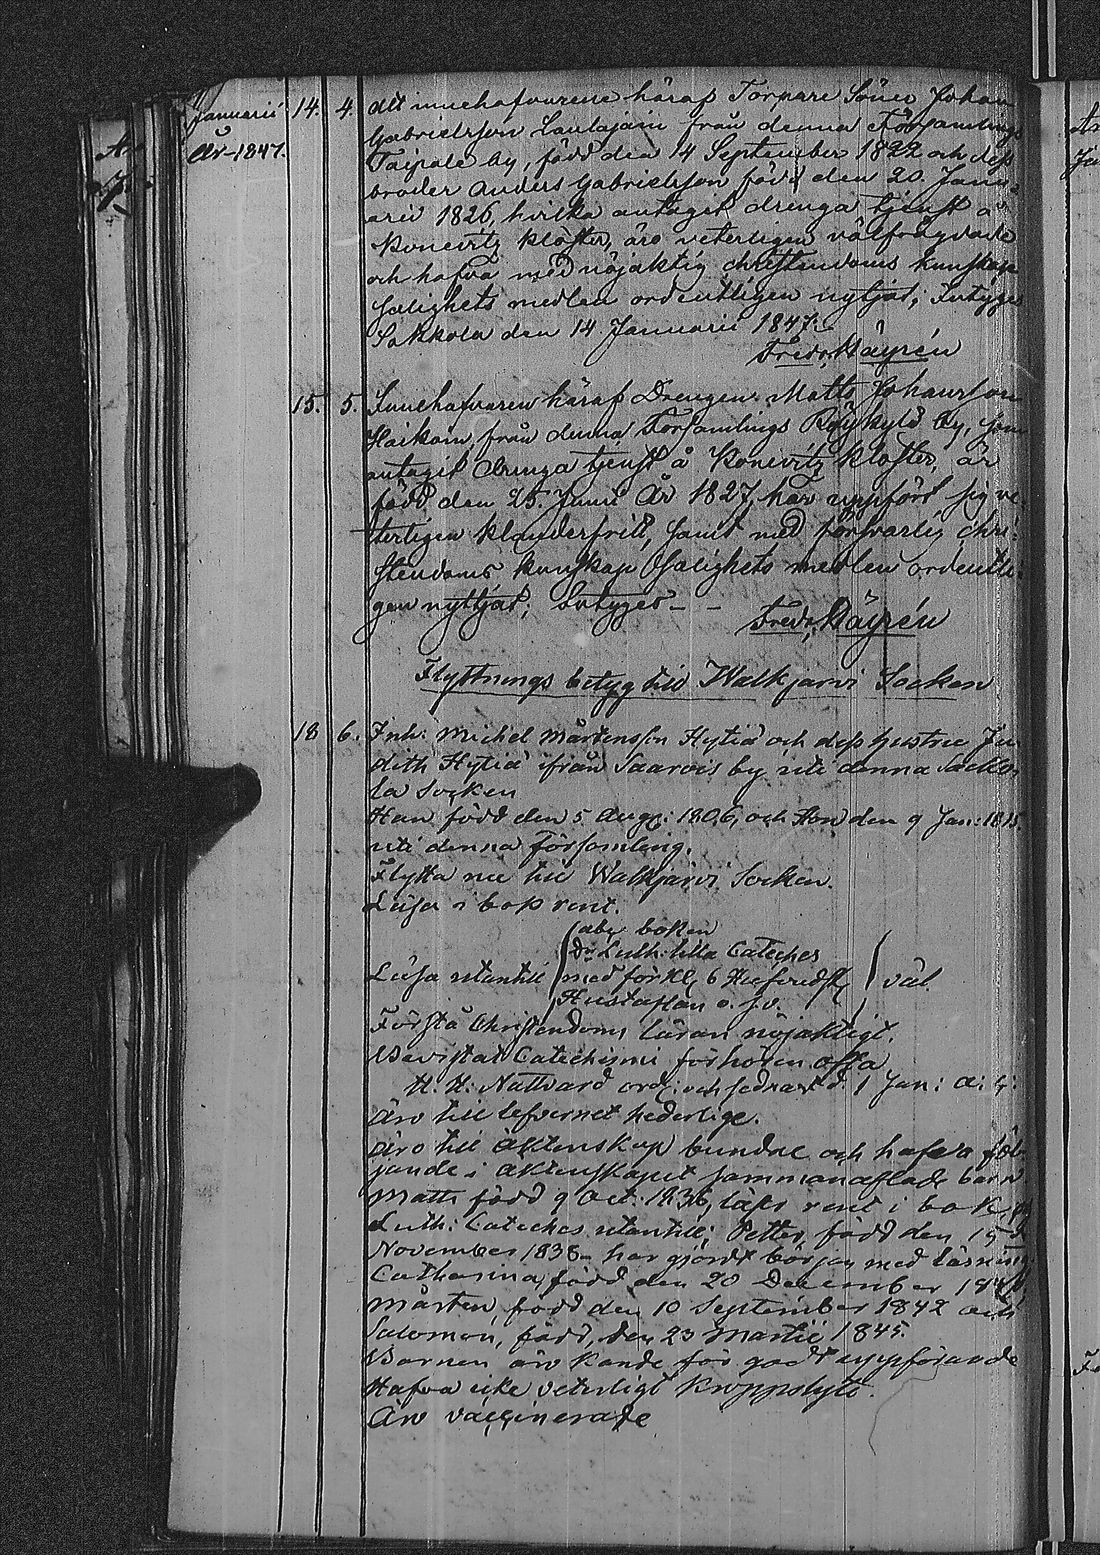 Januarii 14. 4. att innehafvarene häraf Torpare Söner Johan
År 1847. Gabrielsson Laulajain från denna Församlings
Taipale by, född den 14 September 1822 och dess
broder Anders Gabrielsson född den 20. Janu-
arii 1826, hvilka antagit drenga tjenst å
Konevitz Klöster, äro veterligen välfrägdade
och hafva med nöjaktig christendoms kunskap
salighets medlen ordentligen nytjat; Intygas
Sakkola den 14 Januarii 1847.
Fredr. Häyrén
15. 5. Innehafvaren häraf Drengen Matts Johansson
Haikain, från denna Församlings Röykylä by, som
antagit drenga tjenst å Konevitz Kloster, är
född den 25. Junii År 1827, har uppfört sig ve-
terligen klanderfritt, samt med försvarlig chri-
stendoms kunskap Salighets medlen ordentli-
gen nyttjat; Intyges - -
Fredr. Häyrén
Flyttnings betyg till Walkjarvi Socken
18 6. Inh: Michel Mårtensson Hytiä och dess hustru Ju
dith Hytiä ifrån Saarois by uti denna Sakko
la Socken
Han född den 5 Aug: 1806, och Hon den 9 Jan: 1815
uti denna Församling.
Flytta nu till Walkjarvi Socken.
Läsa i bok rent.
abc boken
Dr Luth: lilla Cateches
Läsa utantill med förkl, 6 Hufvudst väl.
Hustaflan o. s. v.
Förstå Christendoms läran nöjaktigt.
Bevistat Catechismi förhören ofta
H. H: Nattvard ord: och sednast d. 1 Jan: a: c:
Äro till lefvernet hederlige.
Äro till äktenskap bundne och hafva föl-
jande i äktenskapet sammanaflade barn
Matts född 9 Oct: 1836, läser rent i bok, och
Luth: Cateches utantill; Petter, född den 15
November 1838 har gjordt början med läsning
Catharina, född den 20 December
Mårten, född den 10 September 1842 och
Salomon, född, den 23 Martii 1845.
Barnen äro kände för godt uppförande
Hafva icke veterligt kroppslyte.
Äro vaccinerade